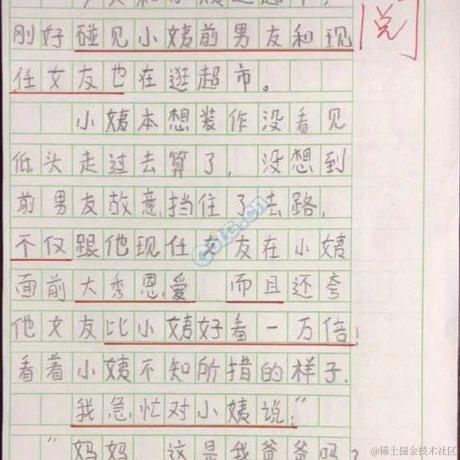 刚好碰见小姨前男友和现
任女友也在逛超市。
小姨本想装作没看见
低头走过去算了，没想到
前男友故意挡住了去路，
不仅跟他现任女友在小姨
面前大秀恩爱，而且还夸
他女友比小姨好看一万倍！
看着小姨不知所措的样子，
我急忙对小姨说："
"妈妈，这是我爸爸吗？
阅
@稀土掘金技术社区